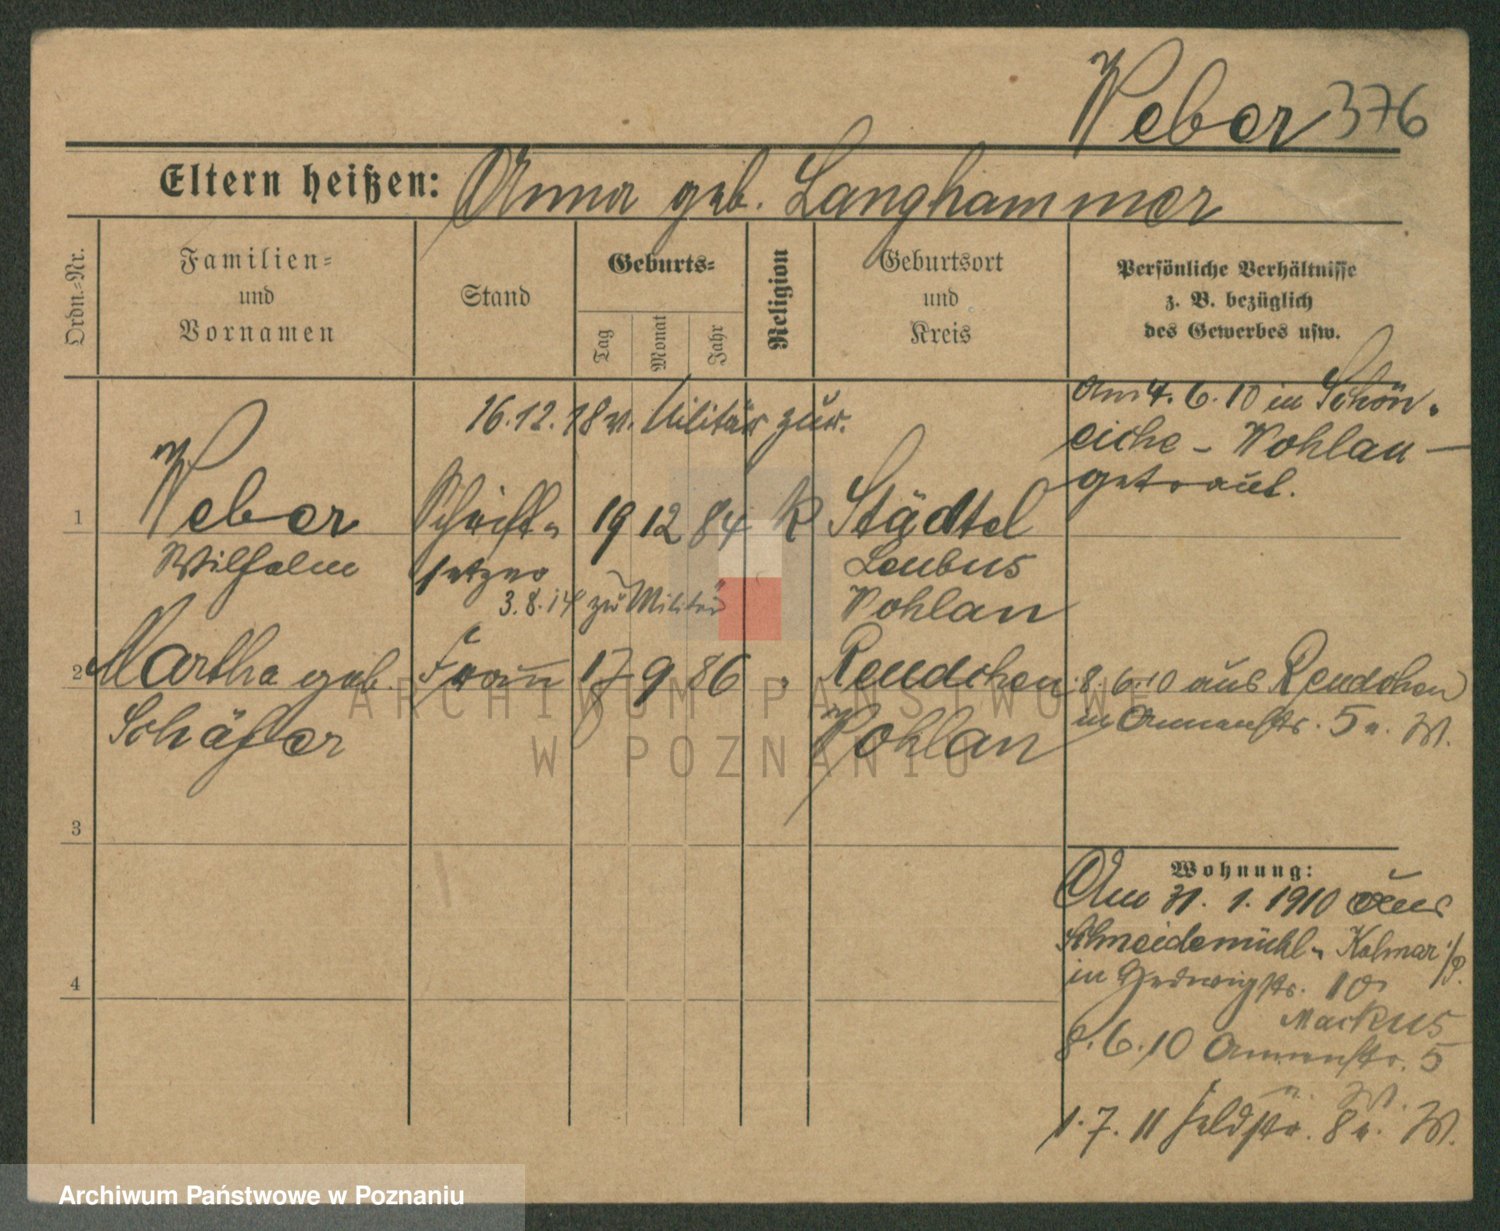 Weber 376
Eltern heißen: Anna geb. Langhammer
Ordn.-Nr.
Familien-
und
Vornamen
Stand
Geburts-
Tag
Monat
Jahr
Religion
Geburtsort
und
Kreis
Persönliche Verhältnisse
z. B. bezüglich
des Gewerbes usw.
16.12.18 v. Militär zur.
Am 4. 6. 10 in Schön-
eiche - Wohlau -
getraut.
1 Weber Schrift- 19 12 84 k Städtel
Wilhelm setzer Leubus
3.8.14 zu Militär Wohlau
2 Martha geb. Frau 17 9 86 Reudchen 8.6.10 aus Reudchen
Schäfer Wohlau in Annenstr. 5 W.
3
4
Wohnung:
Am 31. 1. 1910 aus
Schneidemühl - Kolmar i/P.
in Hedwigstr. 10
Mackus
8.6.10 Annenstr. 5
W.
1.7.11 Feldstr. 8 W.
ARCHIWUM PAŃSTWOWE
W POZNANIU
Archiwum Państwowe w Poznaniu